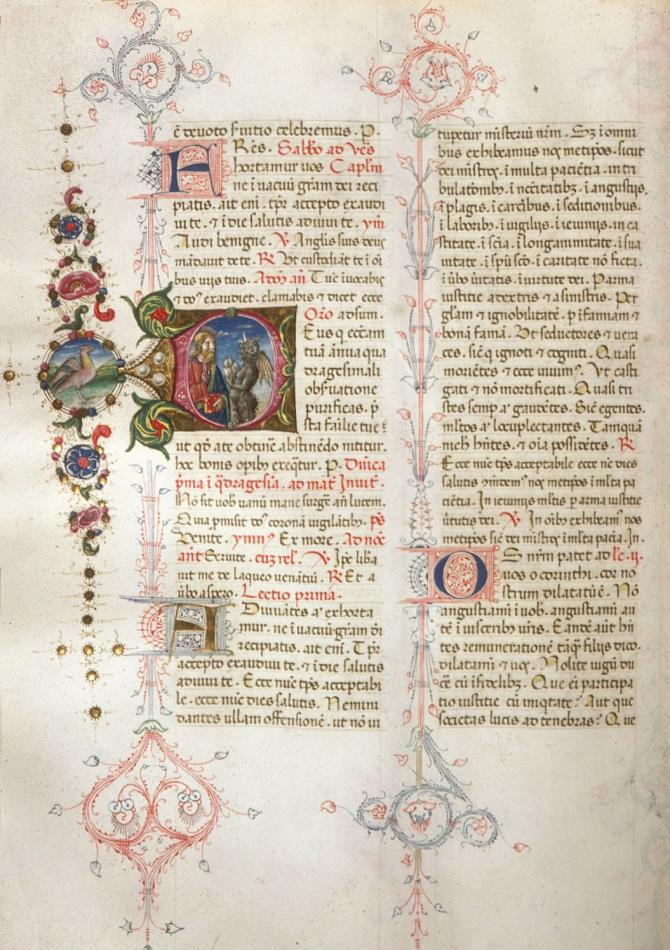 ē devoto s̃vitio celebremus. P.
Rēs. Sabbo ad vēs
FRES. 
hortamur vos Caplm̃
ne ĩ vacuũ gr̃am dei reci
piatis. ait eni. tp̃r accepto exaudi
vi te. ⁊ ĩ die salutis adiuvi te. ym̃
Audi benigne. ℣ Angl̃is suis deus
mãdavit de te. ℟ Vt custodiãt te ĩ oĩ
bus viis tuis. Ad ṽ. añ Tũc ĩvocabis
⁊ dõs exaudiet. clamabis ⁊ dicet ecce
Orõ adsum.
Deus q̃ ecc̃am
tuã ãnua qua
dragesimali
obs̃vatione
purificas. p̃
sta familie tue
ut qđ a te obtinẽ abstinẽdo nititur.
hoc bonis opib̃ exeq̃tur. P. Dñica
p̃ma ĩ q̃dragesĩa. ad mat̃ Invit.
Nõ sit vob̃ vanũ mane surgẽ añ lucem.
Quia p̃misit dõs coronã vigilãtib̃. ps̃
Venite. ymñ Ex more. Ad noc̃
añt Servite. cũ rel̃. ℣ Ip̃e liba
vit me de laqueo venãtiũ. ℟ Et a
v̾bo aspero. Lectio prima.
Adiuvãtes aũ exhorta
mur. ne ĩ vacuũ gr̃am dei
recipiatis. ait eni. Tp̃r
accepto exaudivi te. ⁊ ĩ die salutis
adiuvi te. Ecce nũc tp̃s acceptabi
le. ecce nũc dies salutis. Nemini
dantes ullam offensionẽ. ut nõ vi
tupetur ministeriũ nr̃m. Sʒ ĩ omni
bus exhibeamus nos̃ metip̃os. sicut
dei ministros. ĩ multa paciẽtia. in tri
bulatõnib̃. ĩ necitatibʒ. ĩ angustijs.
ĩ plagis. ĩ carc̃ibus. ĩ seditionibus.
ĩ laborib̃. ĩ vigilijs. ĩ ieiuniis. in ca
stitate. ĩ sc̃ia. ĩ longanimitate. ĩ sua
vitate. ĩ sp̃u sc̃o. ĩ caritate nõ ficta.
ĩ v̾bo v̾itatis. ĩ virtute dei. P arma
iustitie a dextris ⁊ a sinistris. Per
gl̃am ⁊ ignobilitatẽ. p ĩfamiam ⁊
bonã famã. Vt seductores ⁊ vera
ces. sic̃ q̃ ignoti ⁊ cogniti. Quasi
moriẽtes ⁊ ecce vivim⁹. Vt casti
gati ⁊ nõ mortificati. Quasi tri
stes semp aũ gaudẽtes. Sic̃ egentes.
m̃ltos aũ locupletantes. Tamquã
nich̃ hñtes. ⁊ oĩa possidẽtes. ℟
Ecce nũc tp̃s acceptabile ecce nũc dies
salutis cõmendem⁹ nos̃ metip̃os ĩ m̃lta pa
ciẽtia. In ieiuniis m̃ltis p arma iustitie
v̾tutis dei. ℣. In oĩb̃ exhibeam⁹ nos
metip̃os sic̃ dei ministros ĩ m̃lta pac̃ia. In.
OS nr̃m patet ad lc̃. ii.
vos o corinthi. cor no
strum dilatatũ ẽ. Nõ
angustiami ĩ vob̃. angustiami au
tẽ ĩ visceribus vr̃is. Eandẽ aũt hñ
tes remunerationẽ tãq̃ filijs dico.
dilatami ⁊ vos. Nolite iugũ du
cẽ cũ ĩfidelibʒ. Que eĩ participa
tio iustitie cũ iniqtate? Aut que
societas lucis ad tenebras? Que